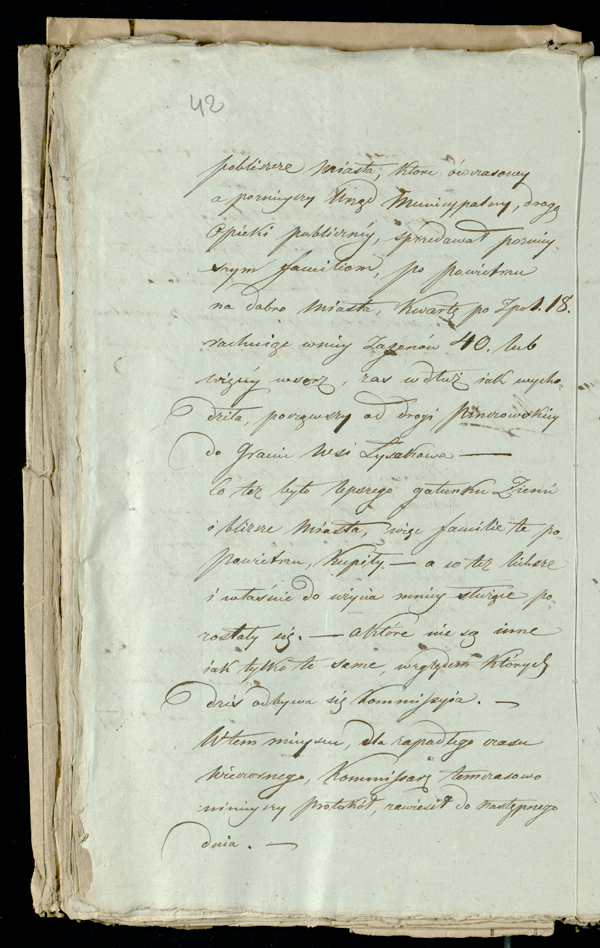 42
publiczne Miasta, które ówczasowy
a poźnieyszy Urząd Municypalny, drogą
Opieki publiczney, sprzedawał poźniey
szym familiom, po powietrzu
na dobro Miasta, Kwartę po Zpol. 18.
rachuiąc w niey Zagonów 40. lub
więcéy wszerz, zaś w dłuż iak wycho
dziła, począwszy od drogi
do Granic Wsi Łysakowa —
Co też było lepszego gatunku Ziemi
i bliższe Miasta, więc familie te po
Powietrzu, Kupiły — a co też lichsze
i właśnie do użycia mniey służące po
zostały się. — a które nie są inne
iak tylko te same, względem których
dziś odbywa się Kommissyia. —
W tem mieyscu, dla zapadłego czasu
Wieczornego, Kommissarz temczasowo
ninieyszy protokół, zawiesił do następnego
dnia. —